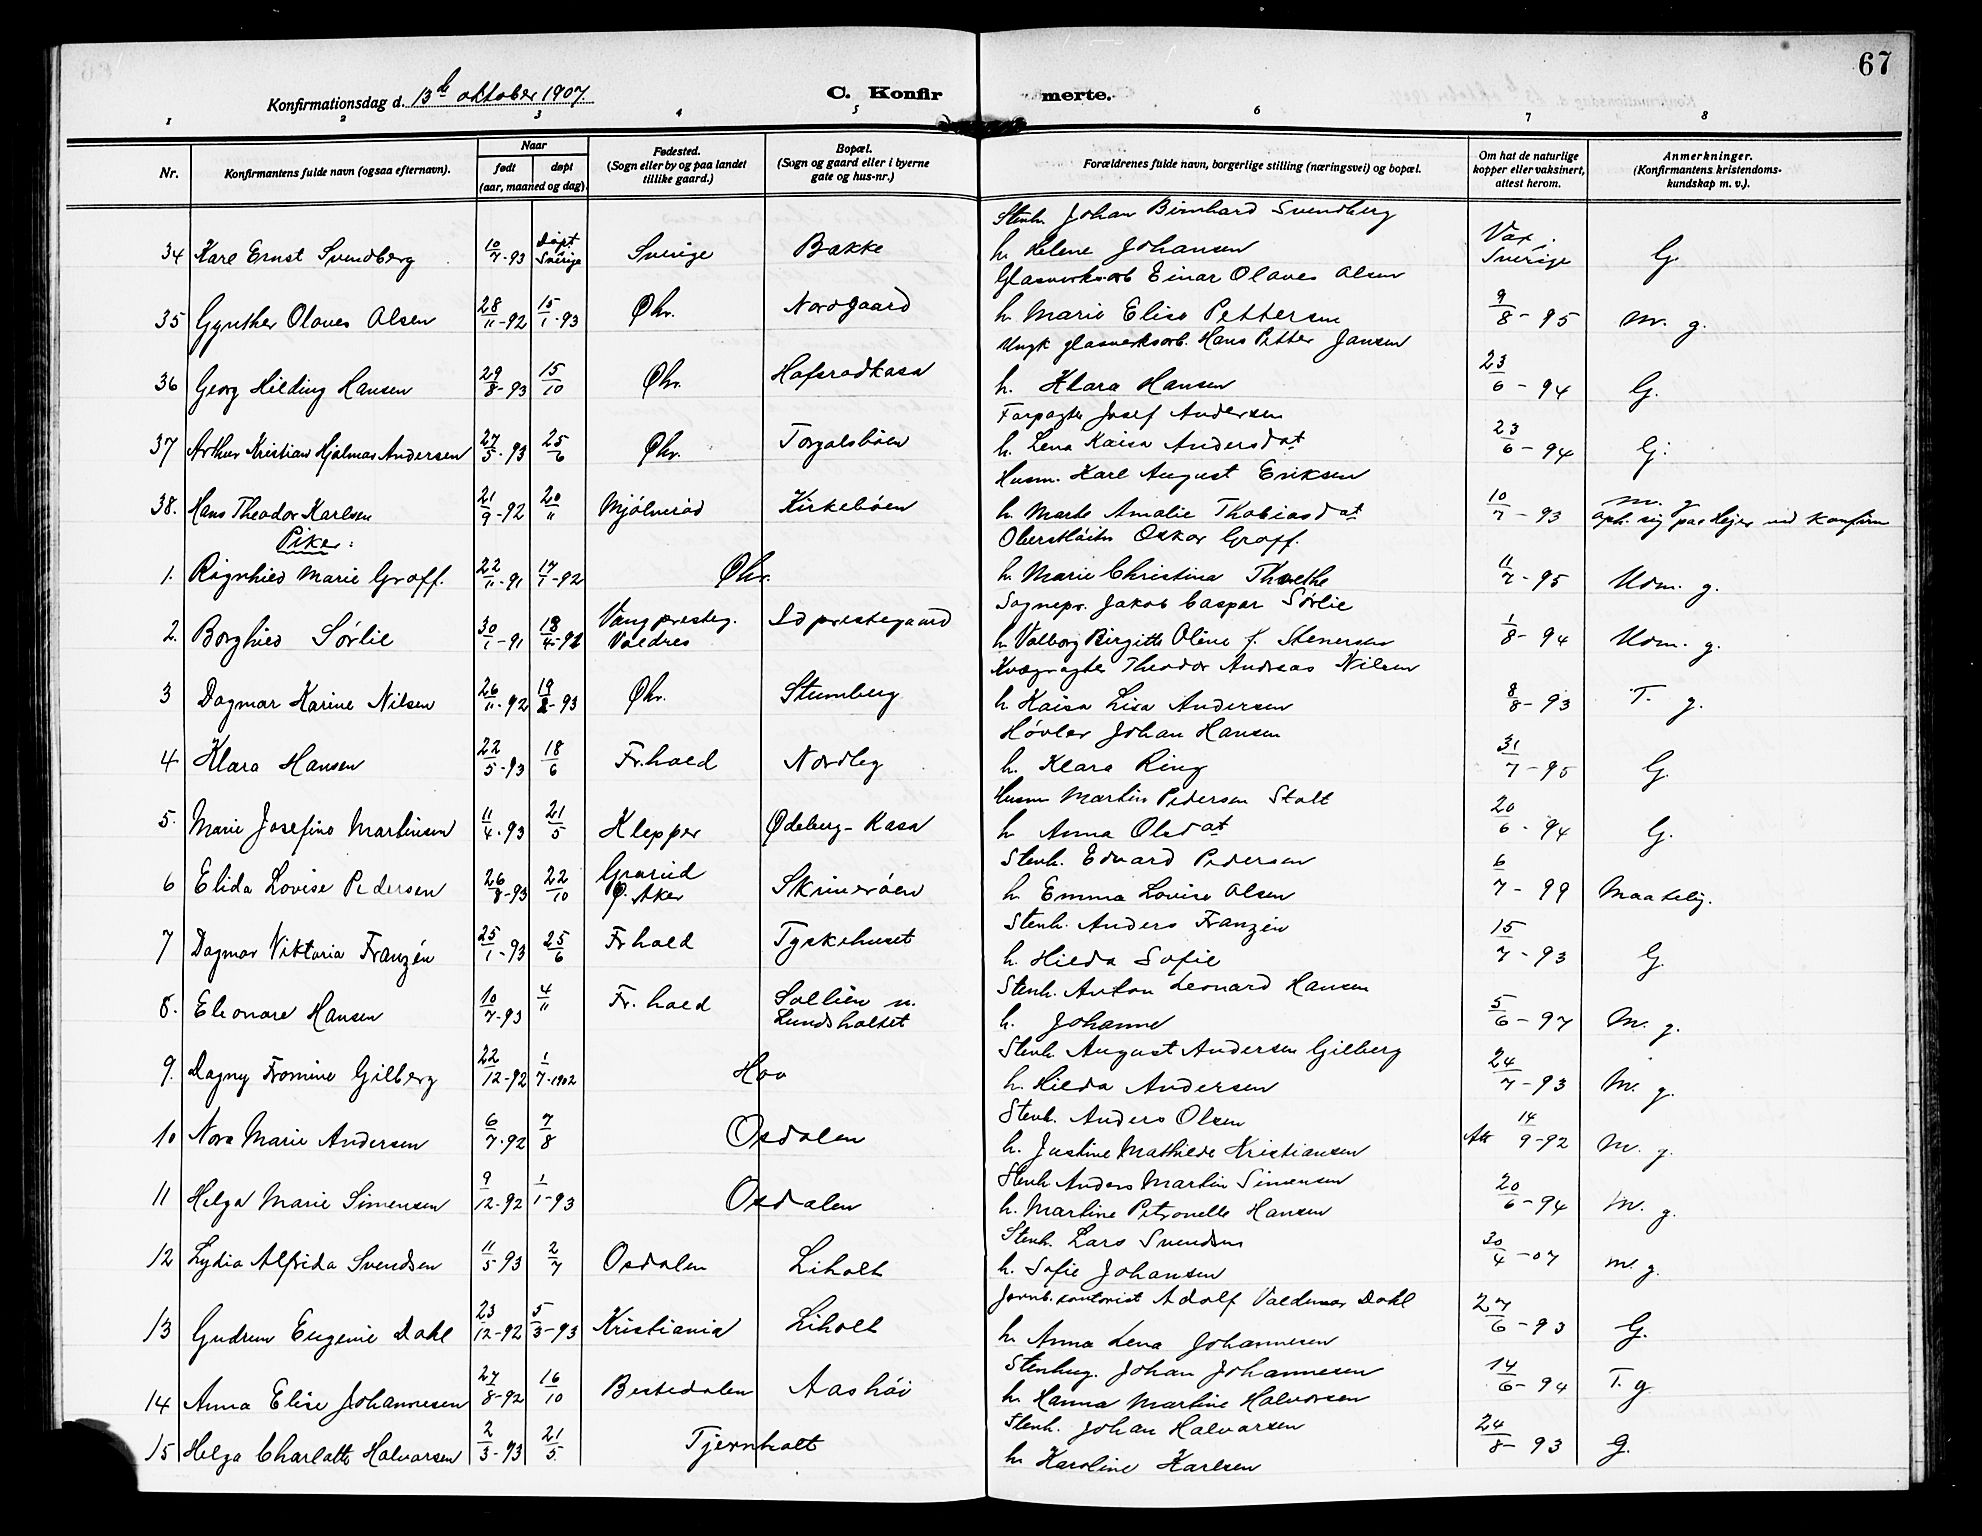 67
Konfirmationsdag d. 13de oktober 1907.
C. Konfirmerte.
1 2 3 4 5 6 7 8
Nr. Konfirmantens fulde navn (ogsaa efternavn). Naar født døpt (aar, maaned og dag). Fødested. (Sogn eller by og paa landet tillike gaard.) Bopæl. (Sogn og gaard eller i byerne gate og hus-nr.) Forældrenes fulde navn, borgerlige stilling (næringsvei) og bopæl. Om hat de naturlige kopper eller vaksinert, attest herom. Anmerkninger. (Konfirmantens kristendoms-kundskap m. v.).
Stenh. Johan Bernhard Svendberg
34 Karl Ernst Svendberg 10/7-93 Døpt i Sverige Sverige Bakke h. Helene Johansen Vax. Sverige G.
Glasverksarb Einar Olaves Olsen
35 Gynther Olaves Olsen 28/11-92 15/1-93 Øhr. Nordgaard h. Marie Elise Pettersen 9/8-95 M. g.
Ungk glasverksarb. Hans Petter Jansen
36 Georg Hilding Hansen 29/8-93 15/10 Øhr. Hafsrodkasa h. Klara Hansen 23/6-94 G.
Forpagter Josef Andersen
37 Arthur Kristian Hjalmar Andersen 27/5-93 25/6 Øhr. Torgalsbøen h. Lena Kaisa Andersdat 23/6-94 G.
Husm. Karl August Eriksen
38. Hans Theodor Karlsen 21/9-92 20/11 Mjølnerød Kirkebøen h. Marte Amalie Thobiasdat 10/7-93 M. g. oph. sig paa Hejer ved Konfirm
Piker:
Oberstløitn Oskar Graff.
1. Ragnhild Marie Graff. 22/11-91 17/1-92 Øhr. h. Marie Christina Threthe 11/7-95 Udm. g.
Sognepr. Jakob Caspar Sørlie
2. Borghild Sørlie 30/1-91 18/4-92 Vang presteg. Valdres Id prestegaard h. Valborg Birgitte Oline f. Stenersen 1/8-94 Udm. g.
Kvægrøgter Theodor Andreas Nilsen
3 Dagmar Karine Nilsen 26/11-92 19/2-93 Øhr. Stumberg h. Kaisa Lisa Andersen 8/8-93 T. g.
Høvler Johan Hansen
4 Klara Hansen 22/5-93 18/6 Fr.hald Nordleg h. Klara Ring 31/7-95 G.
Husm Martin Pedersen Stolt
5. Marie Josefine Martinsen 11/4-93 21/5 Klepper Ødeberg-Kasa h. Anna Olsdat 20/6-94 G.
Stenh. Edvard Pedersen
6 Elida Lovise Pedersen 26/8-93 22/10 Grorud Ø. Aker Skrinerøen h. Emma Lovise Olsen 6/7-99 Maatelig.
Stenh. Anders Franzén
7 Dagmar Viktoria Franzén 25/1-93 25/6 Fr hald Tyskehuset h. Hilda Sofie 15/7-93 G.
Stenh. Anton Leonard Hansen
8. Elenore Hansen 10/7-93 4/11 Fr. hald Sollien u. Lundsholtet h. Johanne 5/6-97 M. g.
Stenh August Andersen Gilberg
9. Dagny Fromine Gilberg 22/12-92 1/7-1902 Hov h. Hilda Andersen 24/7-93 M. g.
Stenh. Anders Olsen
10 Nora Marie Andersen 6/7-92 7/8 Osdalen h. Justine Mathilde Kristiansen Att 14/9-92 M. g.
Stenh Anders Martin Simensen
11 Helga Marie Simensen 9/12-92 1/1-93 Osdalen h. Martine Petronelle Hansen 20/6-94 M. g.
Stenh. Lars Svendsen
12 Lydia Alfrida Svendsen 11/5-93 2/7 Osdalen Liholt h. Sofie Johansen 30/4-07 M. g.
Jernb. kontorist Adolf Valdemar Dahl
13 Gudrun Eugenie Dahl 23/12-92 5/3-93 Kristiania Liholt h. Anna Lena Johannesen 27/6-93 G.
Stenhug. Johan Johannesen
14 Anna Elise Johannesen 27/8-92 16/10 Bestedalen Aashøi h. Hanna Martine Halvorsen 14/6-94 T. g
Stenh. Johan Halvorsen
15 Helga Charlotte Halvorsen 2/3-93 21/5. Tjernholt h. Karoline Karlsen 24/8-93 G.